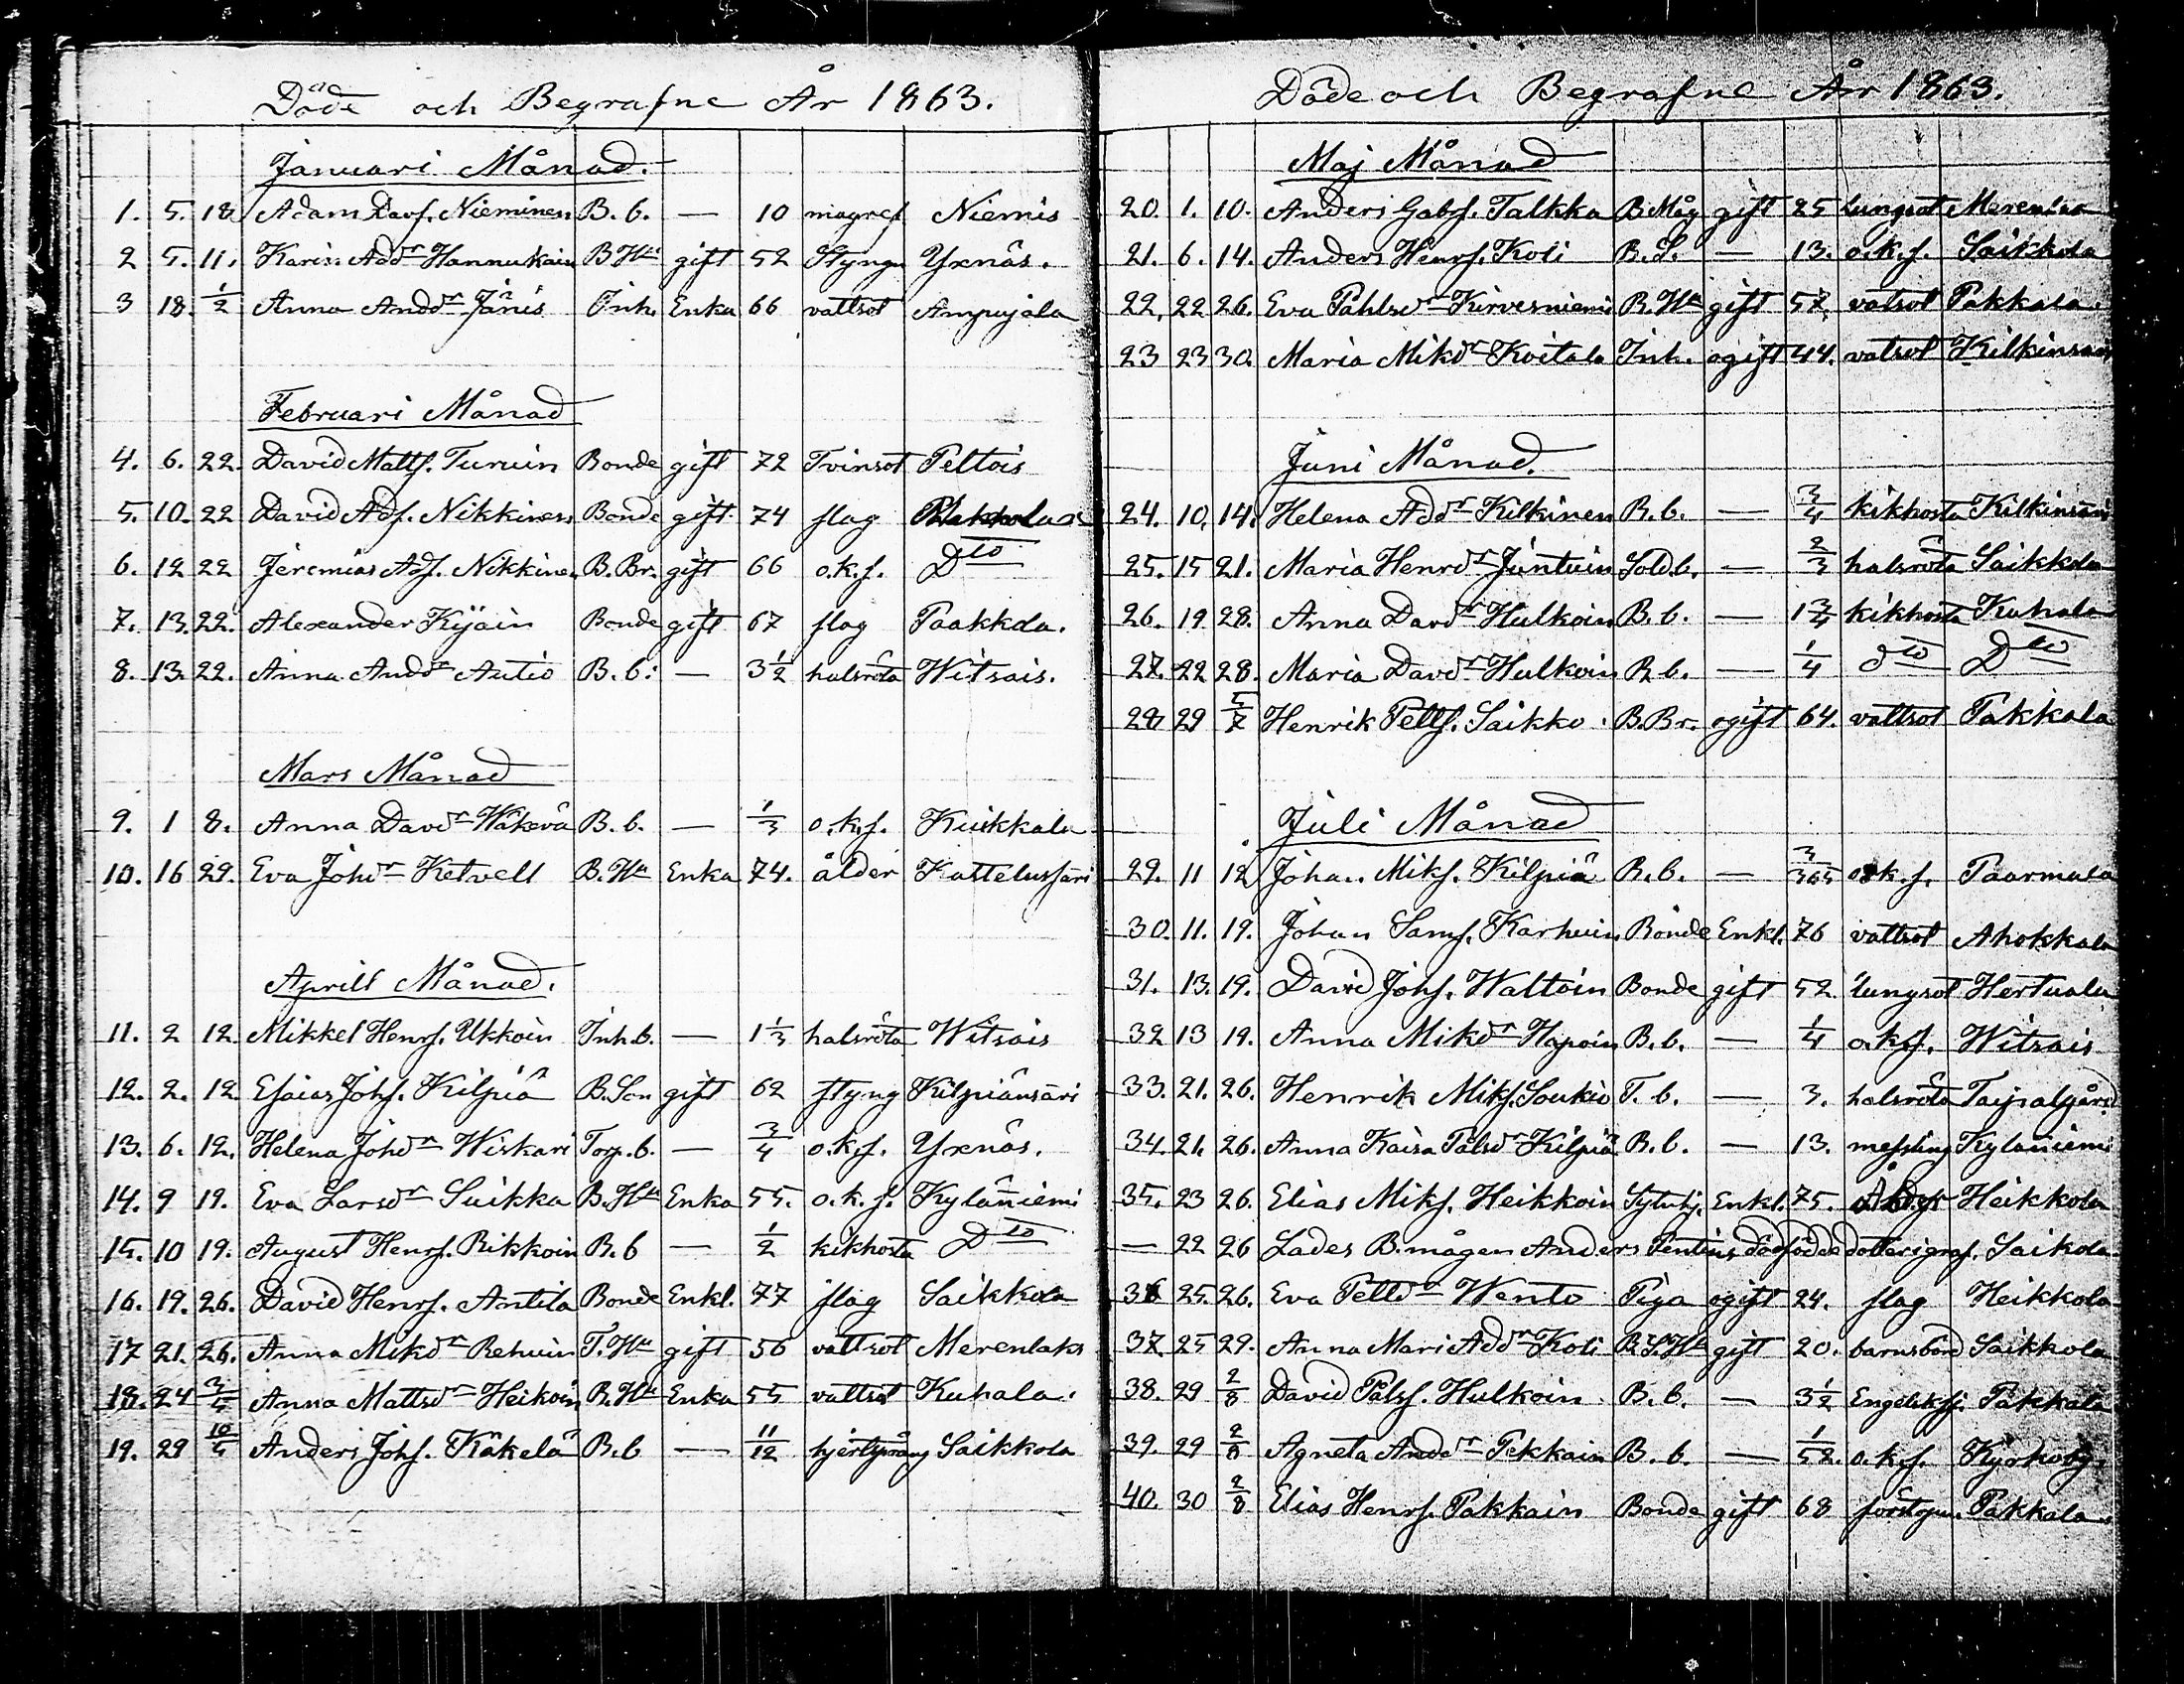 Döde och Begrafne År 1863.
Januari Månad.
1. 5. 18 Adam Davs. Nieminen B. b. — 10 magref Niemis
2 5. 11. Karin Addr Hannukain B Hu gift 52 Styng Yxnäs.
3 18. 1/2 Anna Anddr Jänis Inh. Enka 66 vattsot Ampujala
Februari Månad
4. 6. 22. David Matts. Turuin Bonde gift 72 Tvinsot Peltois
5. 10. 22 David Ads. Nikkinen Bonde gift 74 slag
6. 12 22 Jeremias Ads. Nikkinen B. Br. gift 66 o.k.s. Dto
7. 13. 22. Alexander Kijäin Bonde gift 67 slag Paakkola.
8. 13. 22. Anna Anddr Autio B. b. — 3 1/2 halsröta Witsais.
Mars Månad
9. 1 8. Anna Davdr Wäkevä B. b. — 1/3 o.k.s. Kuikkala
10. 16 29. Eva Johdr Ketvell B. Hu Enka 74. ålder Kattelussari
Aprill Månad.
11. 2 12. Mikkel Henrs. Ukkoin Inh. b. — 1 1/3 halsröta Witsais
12. 2. 12 Esaias Johs. Kilpiä B. Son gift 62 styng Kilpiänsari
13. 6. 12. Helena Johdr Wiskari Torp. b. — 3/4 o.k.s. Yxnäs.
14. 9 19. Eva Larsdr Suikka B. Hu Enka 55. o.k.s. Kyläniemi
15. 10 19. August Henrs. Rikkoin B. b — 1/2 kikhosta Dto
16. 19. 26. David Henrs. Antila Bonde Enkl. 77 slag Saikkola
17 21. 26. Anna Mikdr Rehuin T. Hu gift 56 vattsot Merenlaks
18. 24 3/5 Anna Mattsdr Heikoin B. Hu Enka 55 vattsot Kuhala.
19. 29 10/4 Anders Johs. Käkelä B. b — 11/12 hjertspräng Saikkola
Döde och Begrafne År 1863.
Maj Månad
20. 1. 10. Anders Gabs. Talkka B. Måg gift 25 lungsot Merenlax
21. 6. 14. Anders Henrs. Koli B. S. — 13. o.k.s. Saikkola
22. 22 26. Eva Påhlsdr Kirvesniemi B. Hu gift 57. vatsot Pakkala.
23 23 30. Maria Mikdr Koitala Inh. ogift 44. vatsot
Juni Månad.
24. 10. 14. Helena Addr Kilkinen B. b. — 3/4 kikhosta Kilkinsari
25. 15 21. Maria Henrdr Juntuin Sold. b. — 2/3 halsröta Saikkola
26. 19 28. Anna Davdr Hulkoin B. b. — 1 3/4 kikhosta Kuhala
27. 22 28. Maria Davdr Hulkoin B. b. — 1/4 dto Dto
28 29 5/7 Henrik Petts. Saikko. B. Br. ogift 64. vattsot Pakkala
Juli Månad
29. 11 12 Johan Miks. Kilpiä B. b. — 3/365 o.k.s. Paarmala
30. 11. 19. Johan Sams. Karhuin. Bonde Enkl. 76 vattsot Ahokkala
31. 13. 19. David Johs. Waltoin Bonde gift 52 lungsot Hertuala
32 13 19. Anna Mikdr Hapoin B. b. — 1/4 o.k.s. Witsais
33. 21. 26. Henrik Miks. Soukio T. b. — 3. halsröta Taipalgård
34. 21. 26. Anna Kaisa Pålsdr Kilpiä B. b. — 13. messling Kyläniemi
35. 23 26. Elias Miks. Heikkoin Sytnhj. Enkl. 75. Heikkola
— 22 26 Lades B. mågen Anders Pentins dödfödde dotter i graf. Saikola
36 25. 26. Eva Pettdr Wento Piga ogift 24. slag Heikkola
37. 25 29. Anna Mari Addr Koli B. S. Hu gift 20. barnsbörd Saikkola
38. 29 2/8 David Påls. Hulkoin. B. b. — 3 1/2 Engelsks. Pakkala
39. 29 2/8 Agneta Anddr Pekkain B. b. — 1/52. o.k.s. Kyrkoby.
40. 30 2/8 Elias Henrs. Pakkain Bonde gift 68 förstopn. Pakkala.